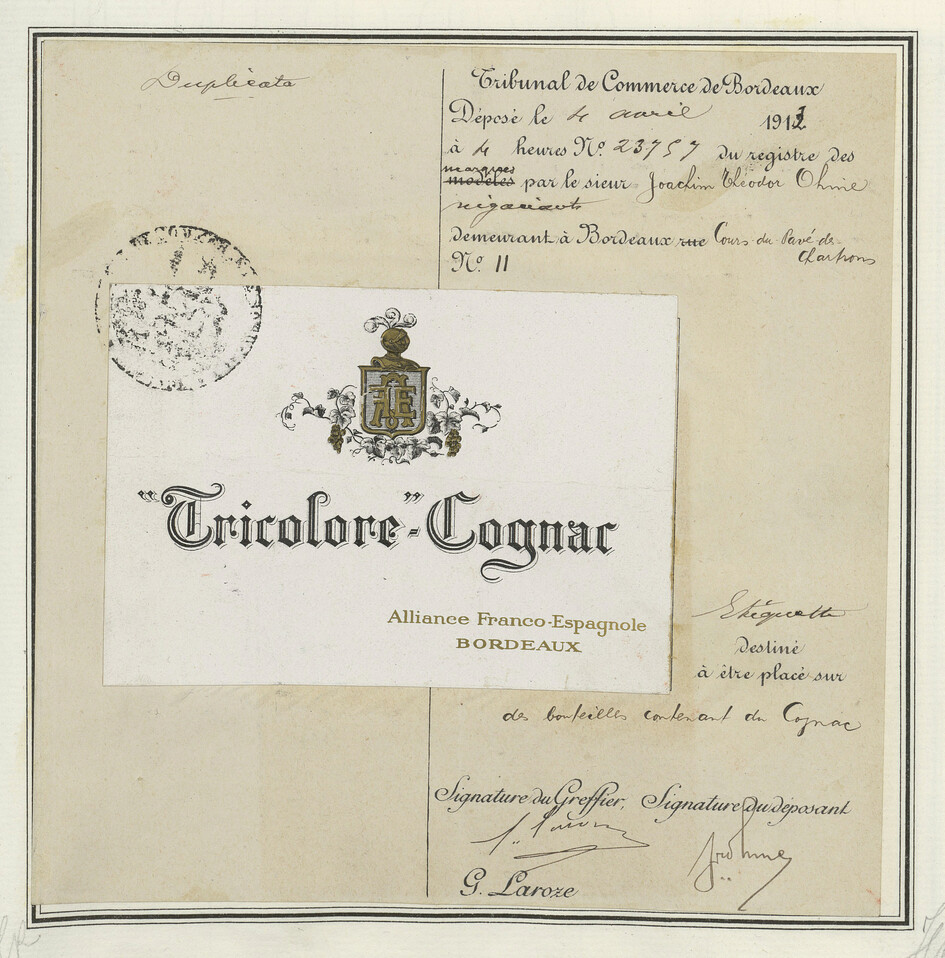 Duplicata
Tribunal de Commerce de Bordeaux
Déposé le 4 avril 1913
à 4 heures No. 23757 du registre des
marques
modèles par le sieur Joachim Théodor Ohme
négociant
demeurant à Bordeaux rue Cours du Pavé des
Chartrons
No. 11
AFE
"Tricolore"-Cognac
Alliance Franco-Espagnole
BORDEAUX
Etiquette
Destiné
à être placé sur
des bouteilles contenant du Cognac
Signature du Greffier, Signature du déposant
G. Laroze